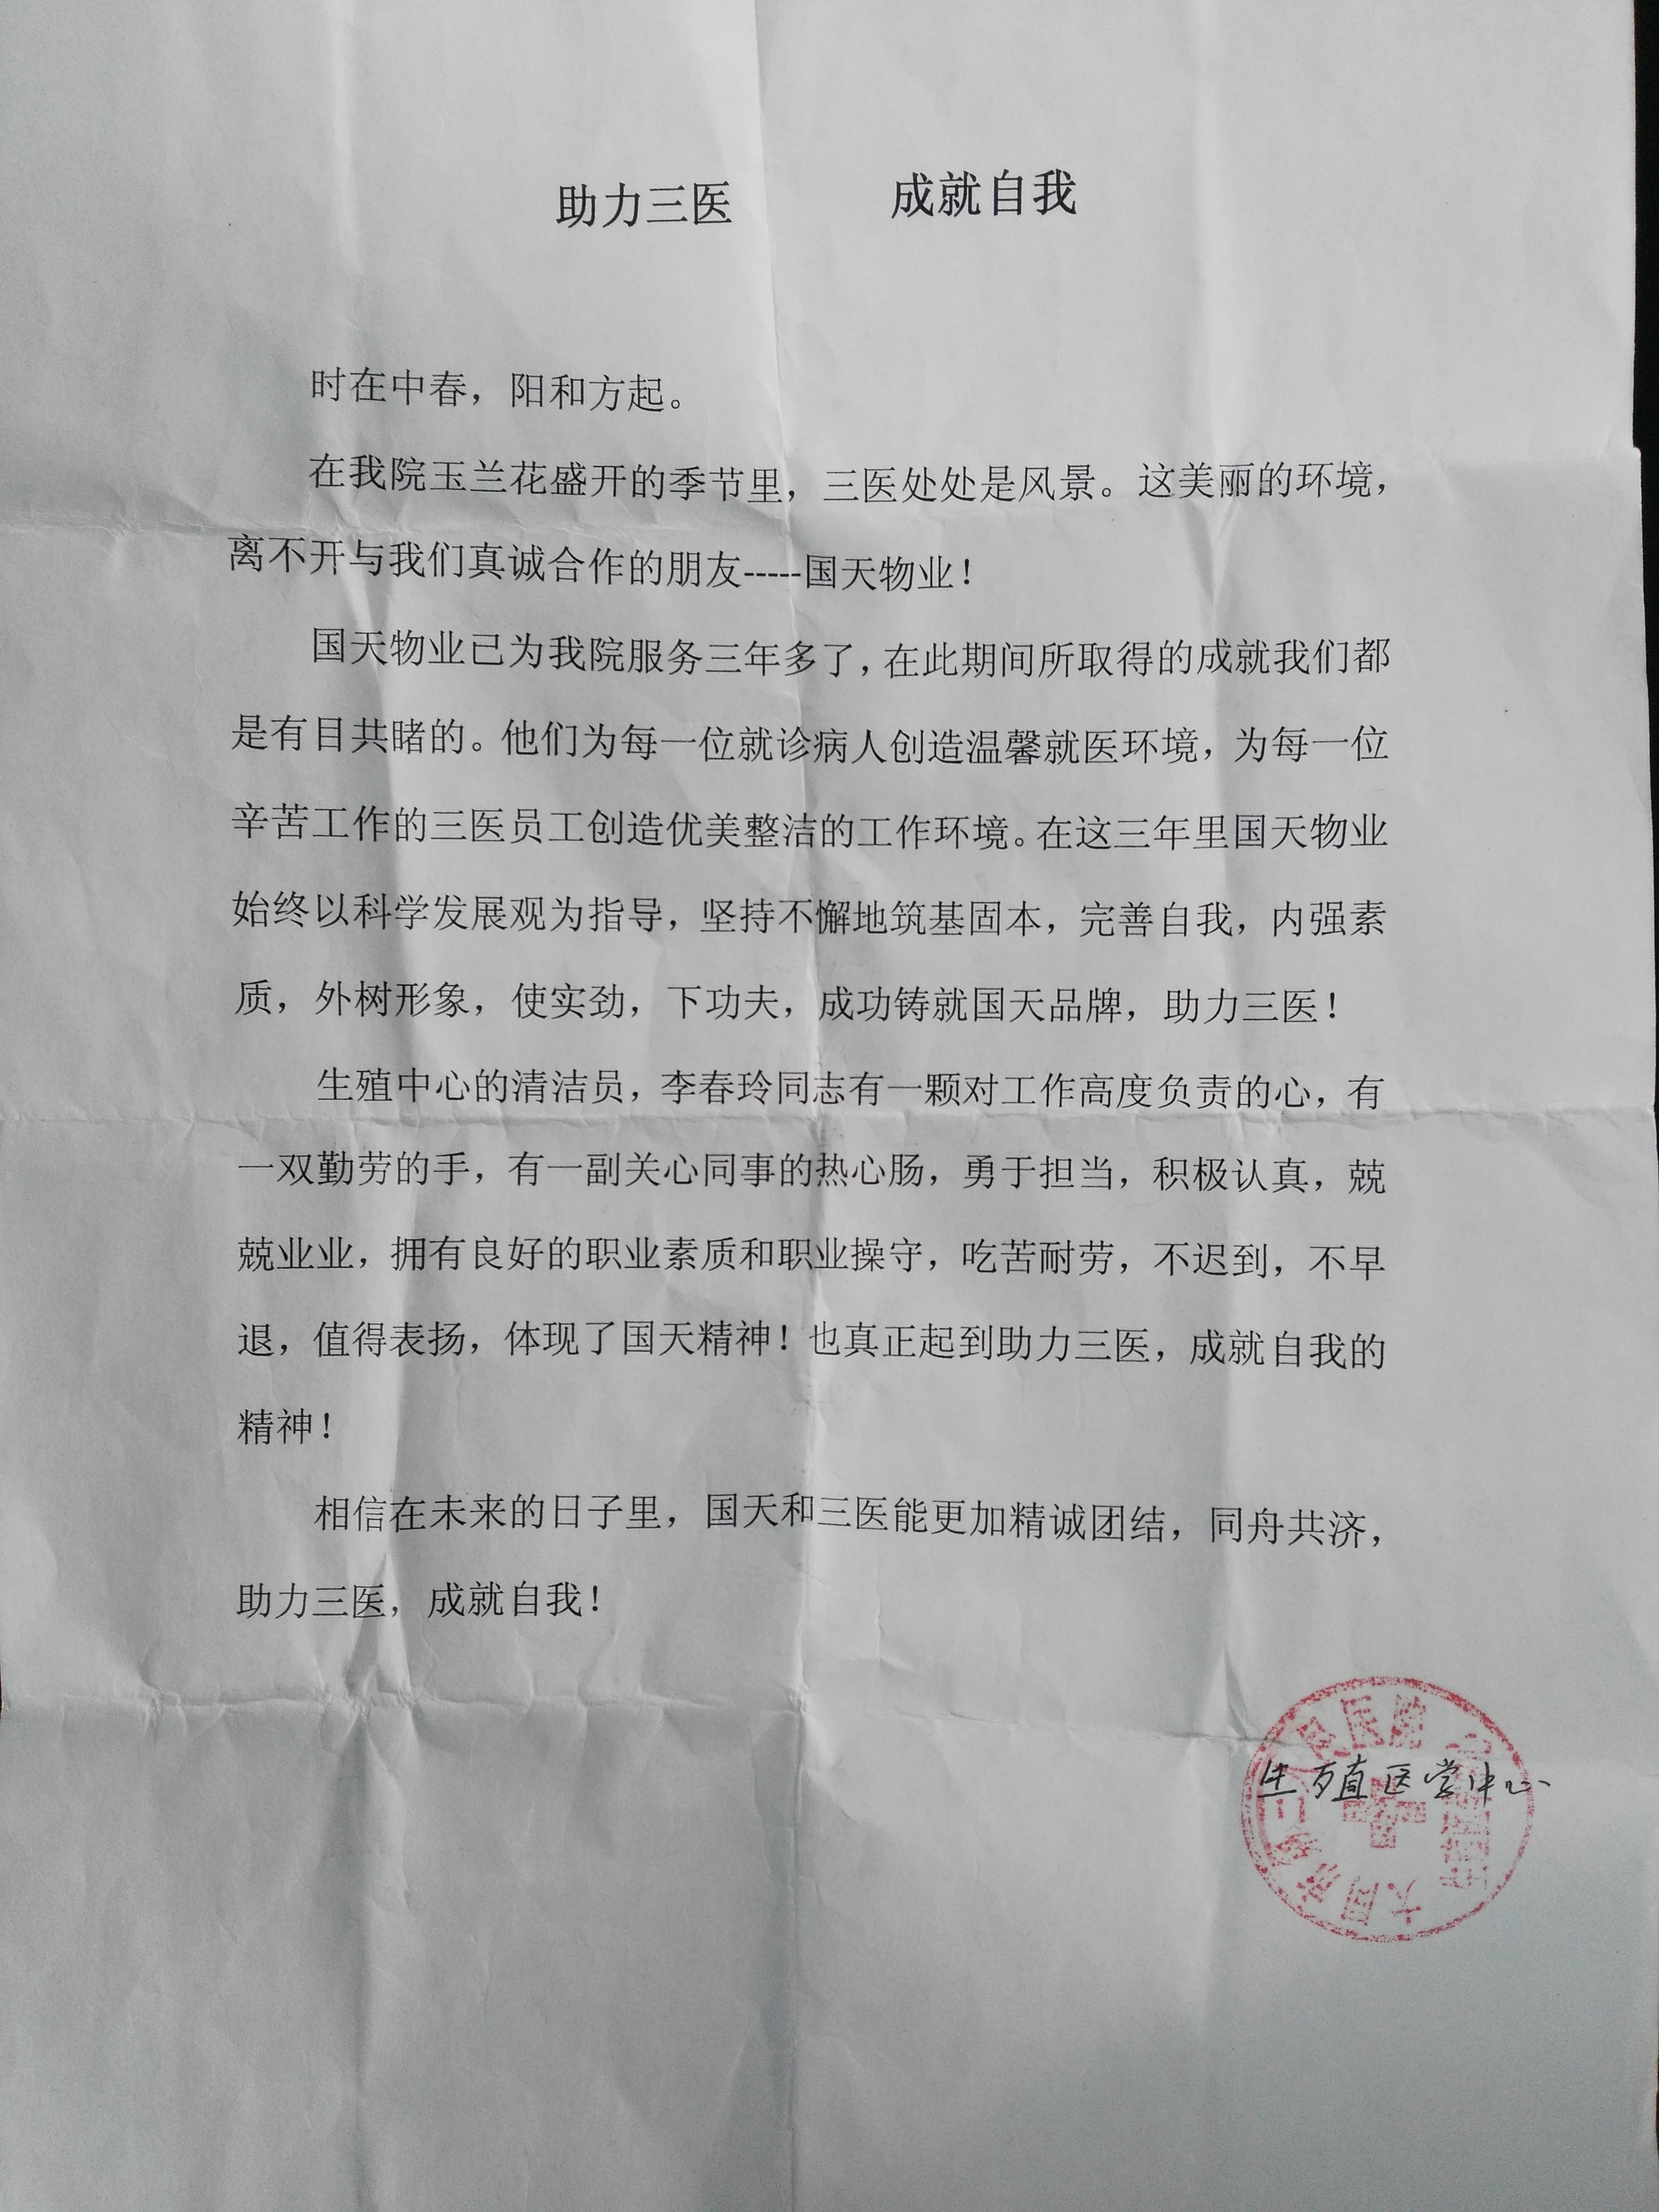 助力三医 成就自我
时在中春，阳和方起。
在我院玉兰花盛开的季节里，三医处处是风景。这美丽的环境，
离不开与我们真诚合作的朋友-----国天物业！
国天物业已为我院服务三年多了，在此期间所取得的成就我们都
是有目共睹的。他们为每一位就诊病人创造温馨就医环境，为每一位
辛苦工作的三医员工创造优美整洁的工作环境。在这三年里国天物业
始终以科学发展观为指导，坚持不懈地筑基固本，完善自我，内强素
质，外树形象，使实劲，下功夫，成功铸就国天品牌，助力三医！
生殖中心的清洁员，李春玲同志有一颗对工作高度负责的心，有
一双勤劳的手，有一副关心同事的热心肠，勇于担当，积极认真，兢
兢业业，拥有良好的职业素质和职业操守，吃苦耐劳，不迟到，不早
退，值得表扬，体现了国天精神！也真正起到助力三医，成就自我的
精神！
相信在未来的日子里，国天和三医能更加精诚团结，同舟共济，
助力三医，成就自我！
生殖医学中心
大同市第三人民医院